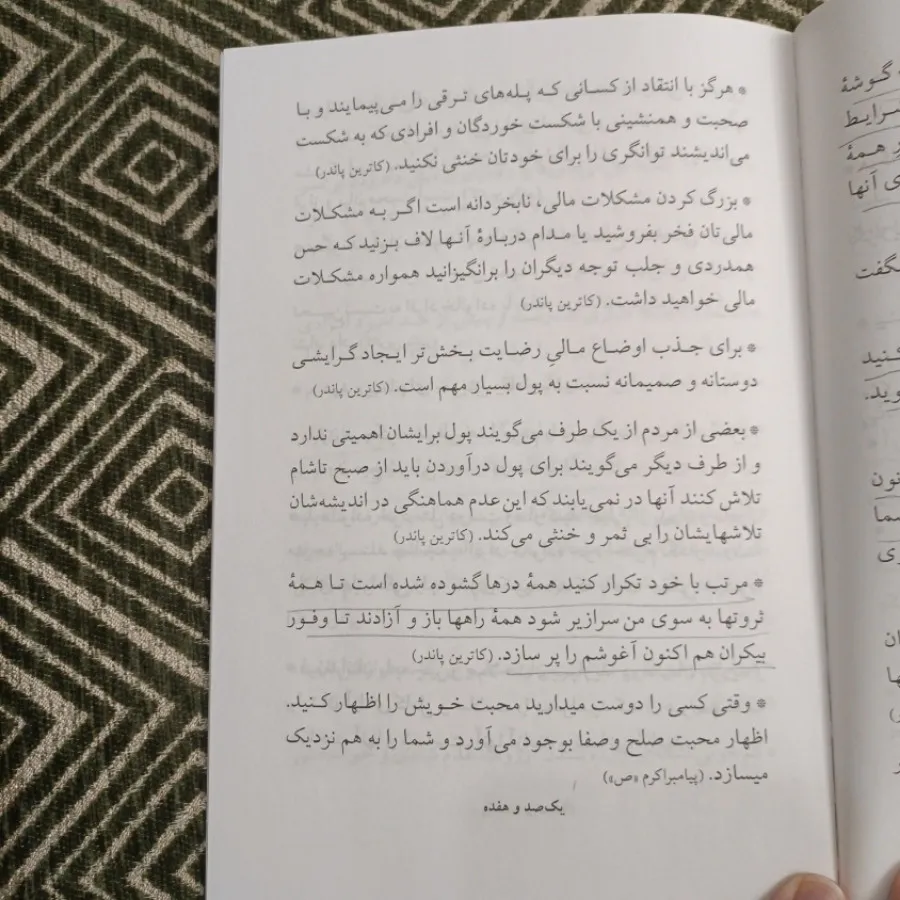 * هرگز با انتقاد از کسانی که پله‌های ترقی را می‌پیمایند و با
صحبت و همنشینی با شکست خوردگان و افرادی که به شکست
می‌اندیشند توانگری را برای خودتان خنثی نکنید. (کاترین پاندر)
* بزرگ کردن مشکلات مالی، نابخردانه است اگر به مشکلات
مالی‌تان فخر بفروشید یا مدام دربارهٔ آنها لاف بزنید که حس
همدردی و جلب توجه دیگران را برانگیزانید همواره مشکلات
مالی خواهید داشت. (کاترین پاندر)
* برای جذب اوضاع مالیِ رضایت بخش‌تر ایجاد گرایشی
دوستانه و صمیمانه نسبت به پول بسیار مهم است. (کاترین پاندر)
* بعضی از مردم از یک طرف می‌گویند پول برایشان اهمیتی ندارد
و از طرف دیگر می‌گویند برای پول درآوردن باید از صبح تاشام
تلاش کنند آنها در نمی‌یابند که این عدم هماهنگی در اندیشه‌شان
تلاشهایشان را بی ثمر و خنثی می‌کند. (کاترین پاندر)
* مرتب با خود تکرار کنید همهٔ درها گشوده شده است تا همهٔ
ثروتها به سوی من سرازیر شود همهٔ راهها باز و آزادند تا وفور
بیکران هم اکنون آغوشم را پر سازد. (کاترین پاندر)
* وقتی کسی را دوست میدارید محبت خویش را اظهار کنید.
اظهار محبت صلح وصفا بوجود می‌آورد و شما را به هم نزدیک
میسازد. (پیامبراکرم «ص»)
یک‌صد و هفده
گوشهٔ
همهٔ
ی آنها
کنید
شما